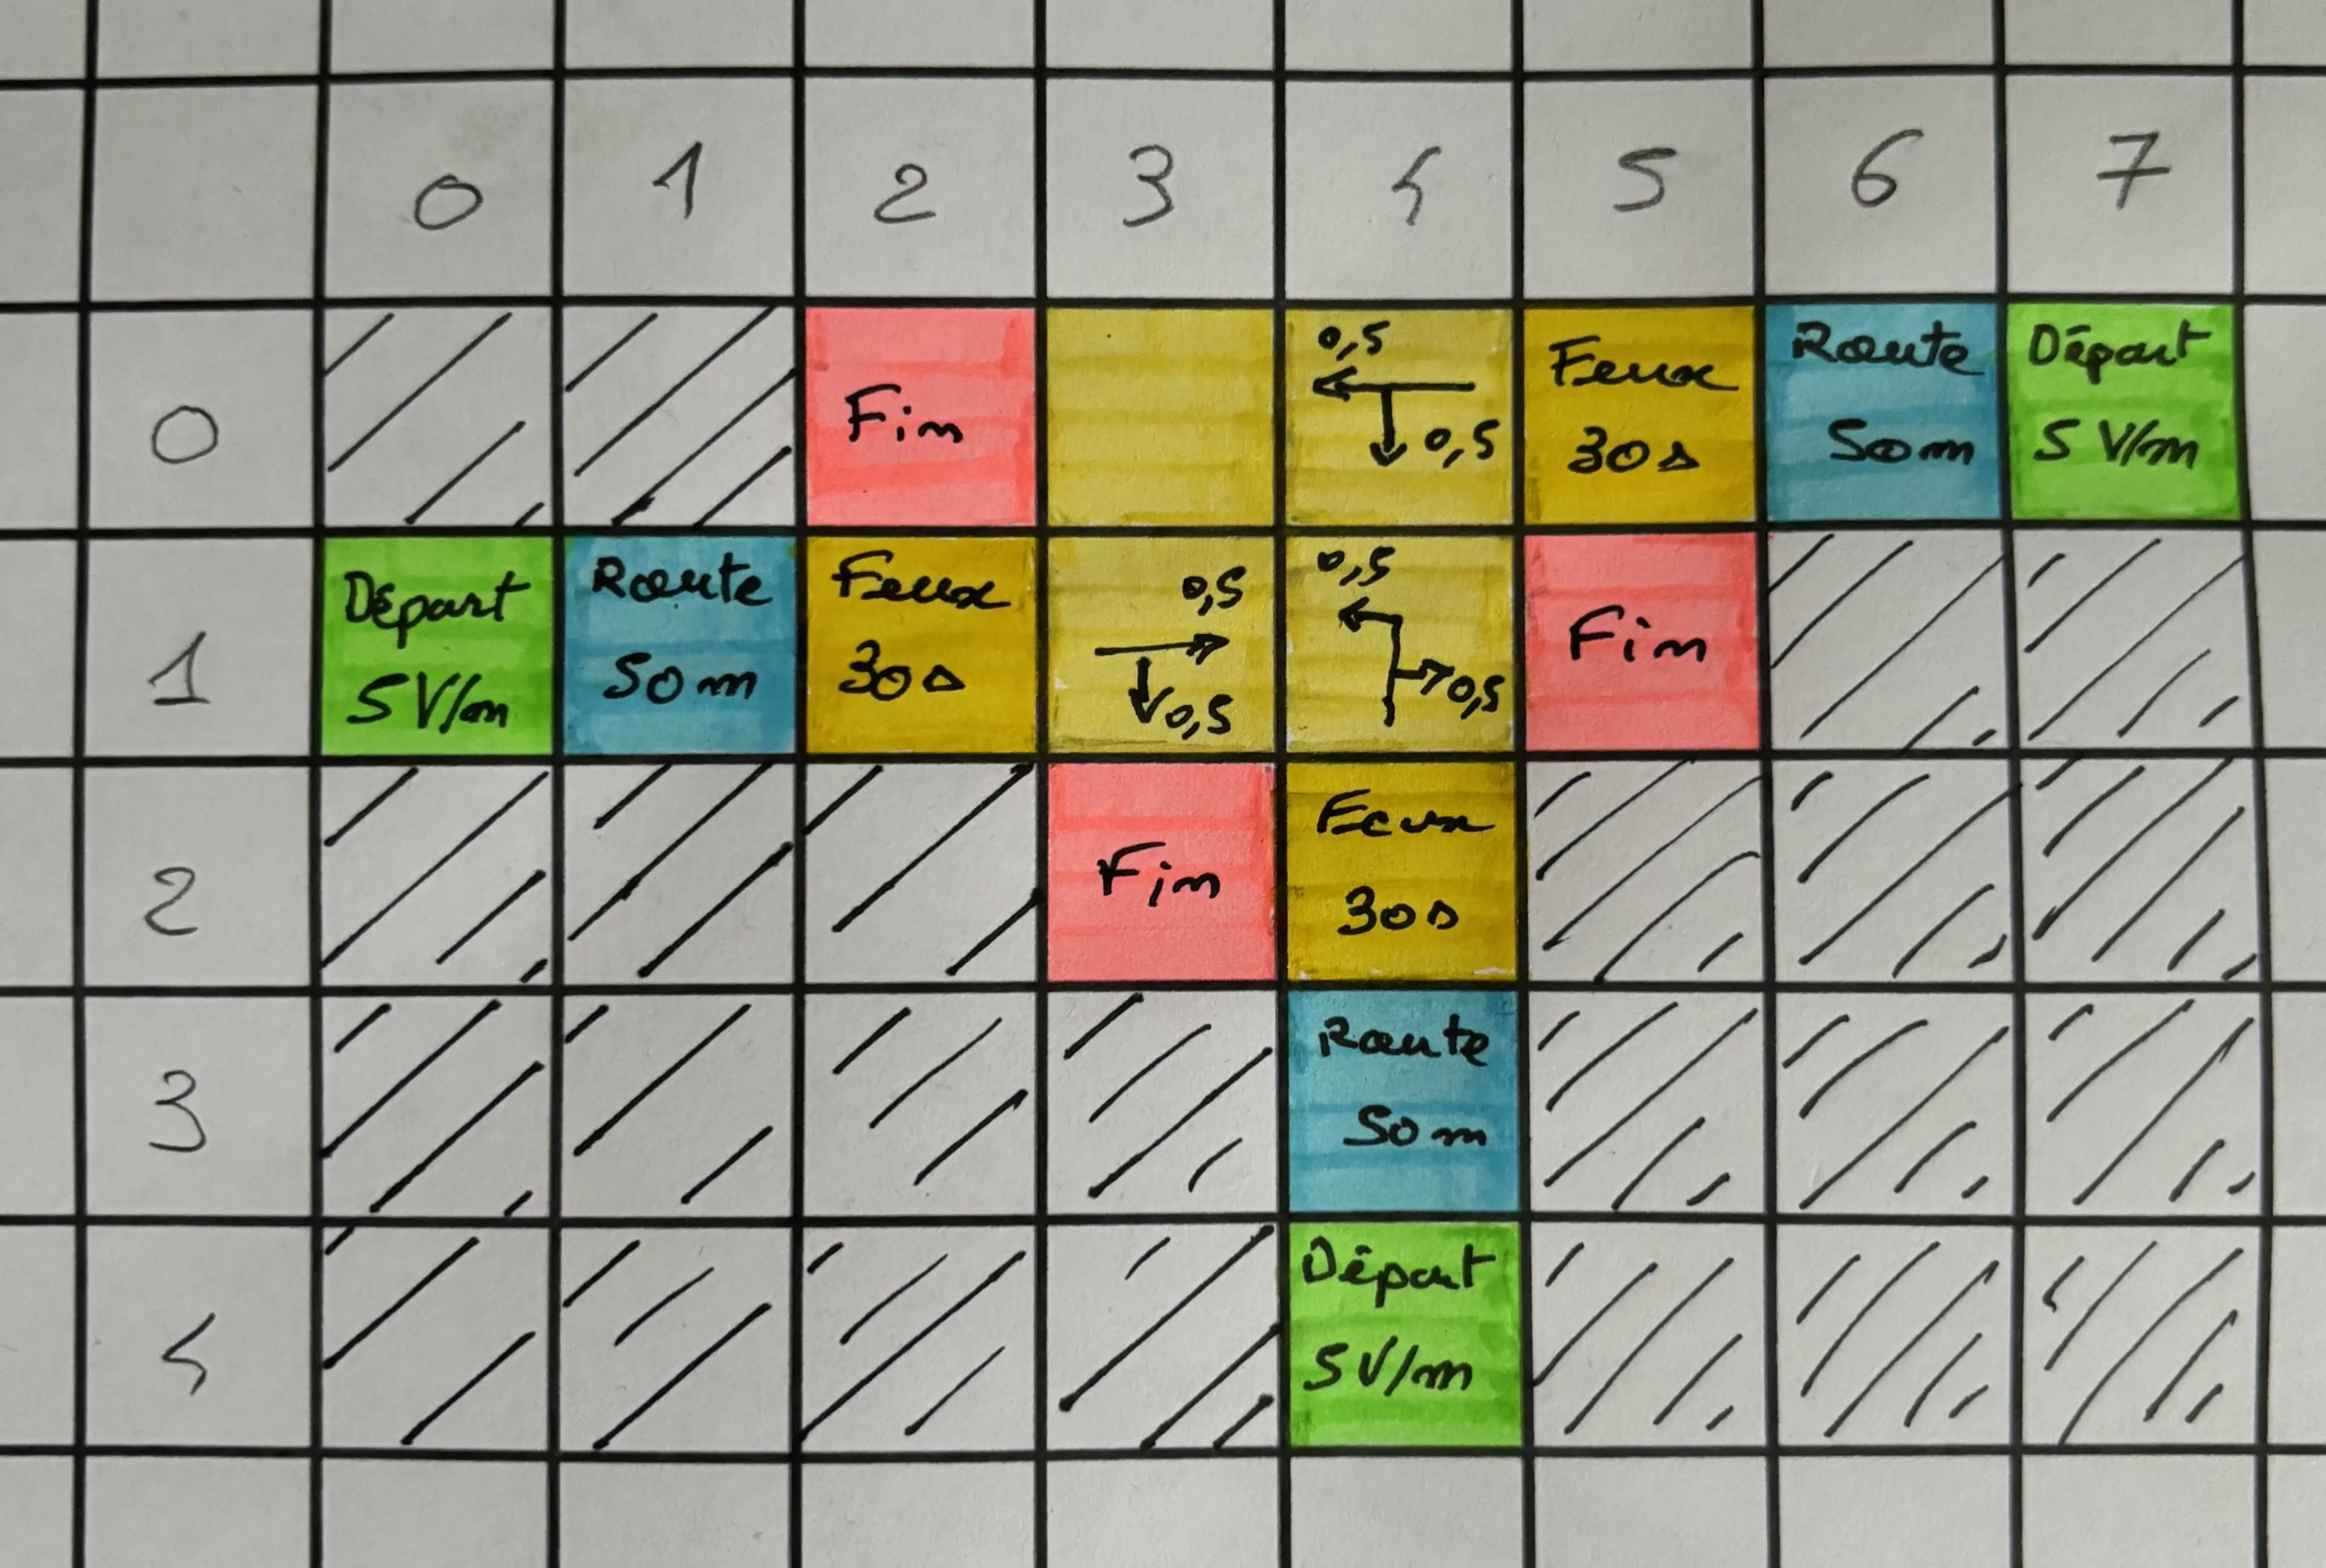 0 1 2 3 4 5 6 7
0
Fin
0,5
0,5
Feux
30s
Route
50m
Départ
5 V/m
1
Départ
5 V/m
Route
50m
Feux
30s
0,5
0,5
0,5
0,5
Fin
2
Fin
Feux
30s
3
Route
50m
4
Départ
5 V/m